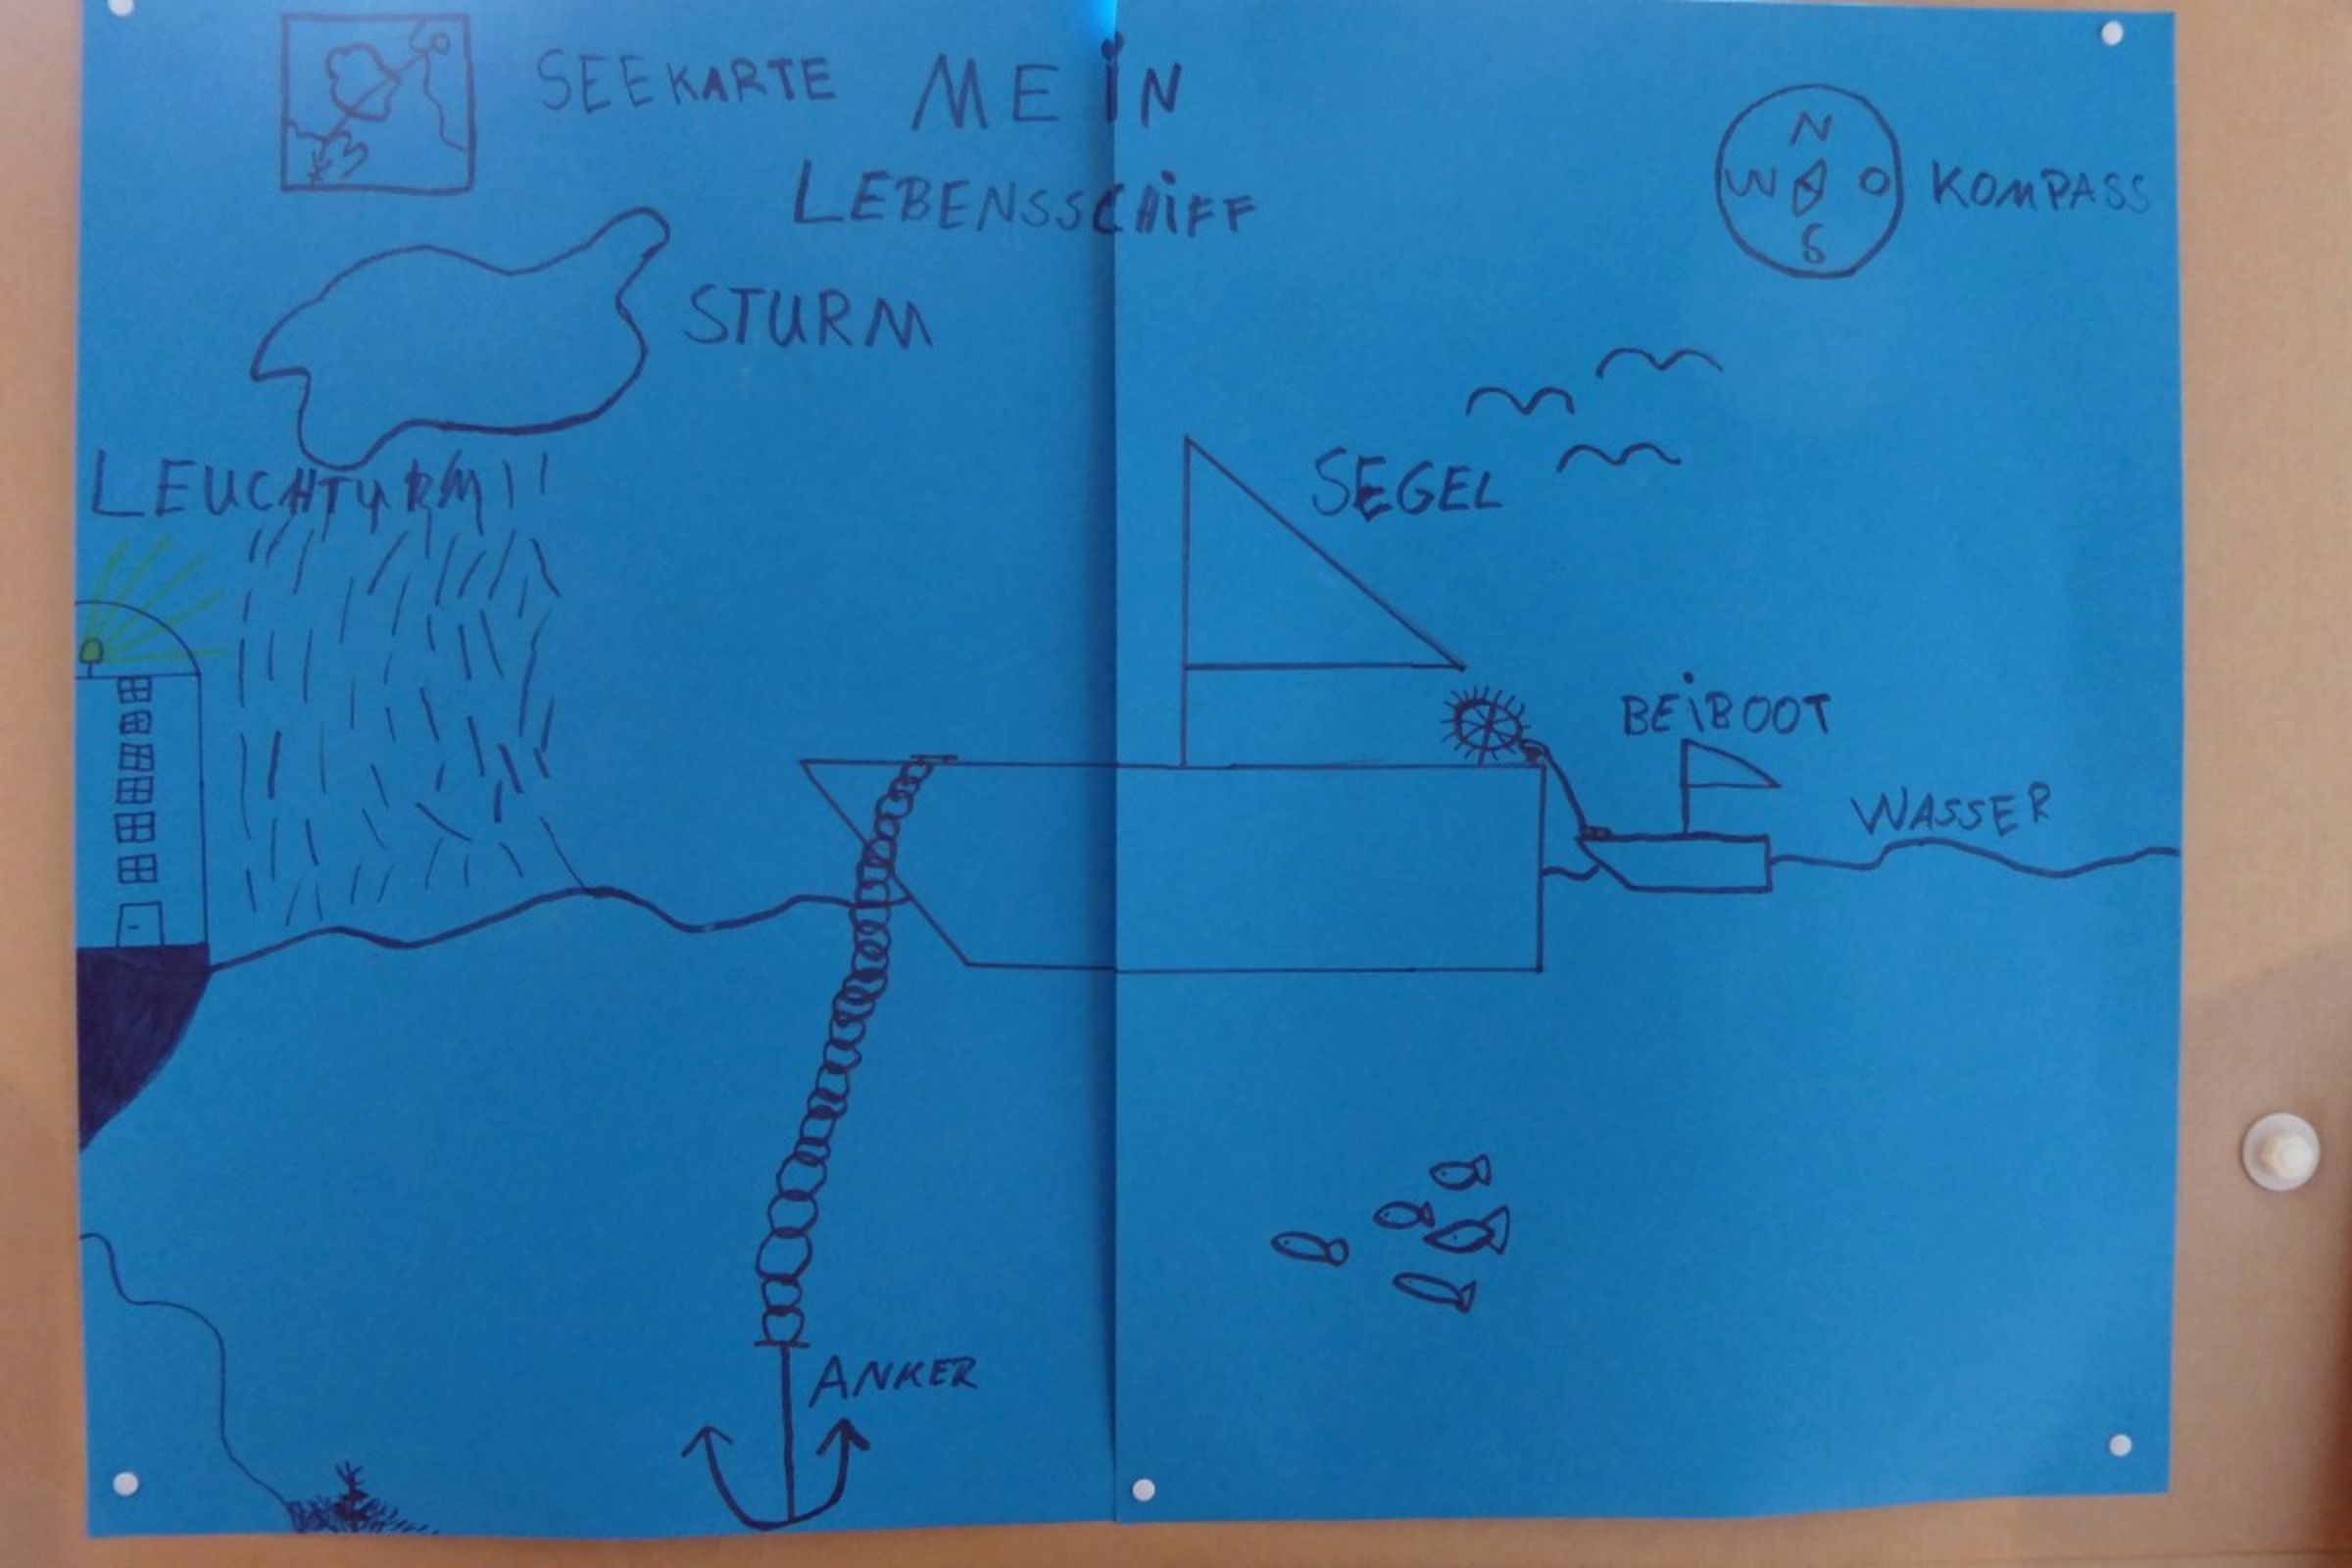 SEEKARTE
MEiN
LEBENSSCHiFF
N
W O
S
KOMPASS
STURM
LEUCHTURM
SEGEL
BEiBOOT
WASSER
ANKER